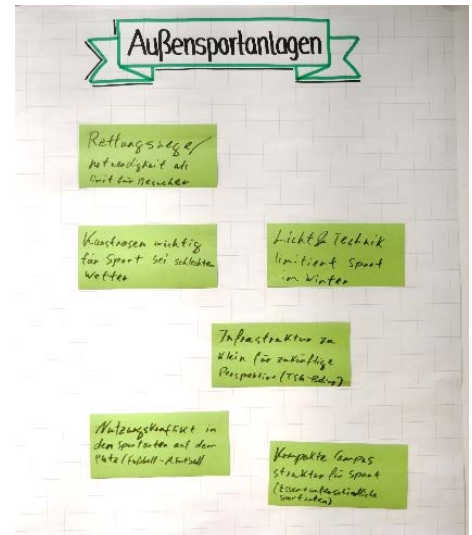 Außensportanlagen
Rettungswege/
notwendigkeit als
limit für Besucher
Kunstrasen wichtig
für Sport bei schlechten
Wetter
Licht & Technik
limitiert Sport
im Winter
Infrastruktur zu
klein für zukünftige
Perspektive (TSG-
Nutzungskonflikt in
den Sportarten auf dem
Platz (Fußball-
Kompakte Campus
struktur für Sport
unterschiedliche
Sportarten)